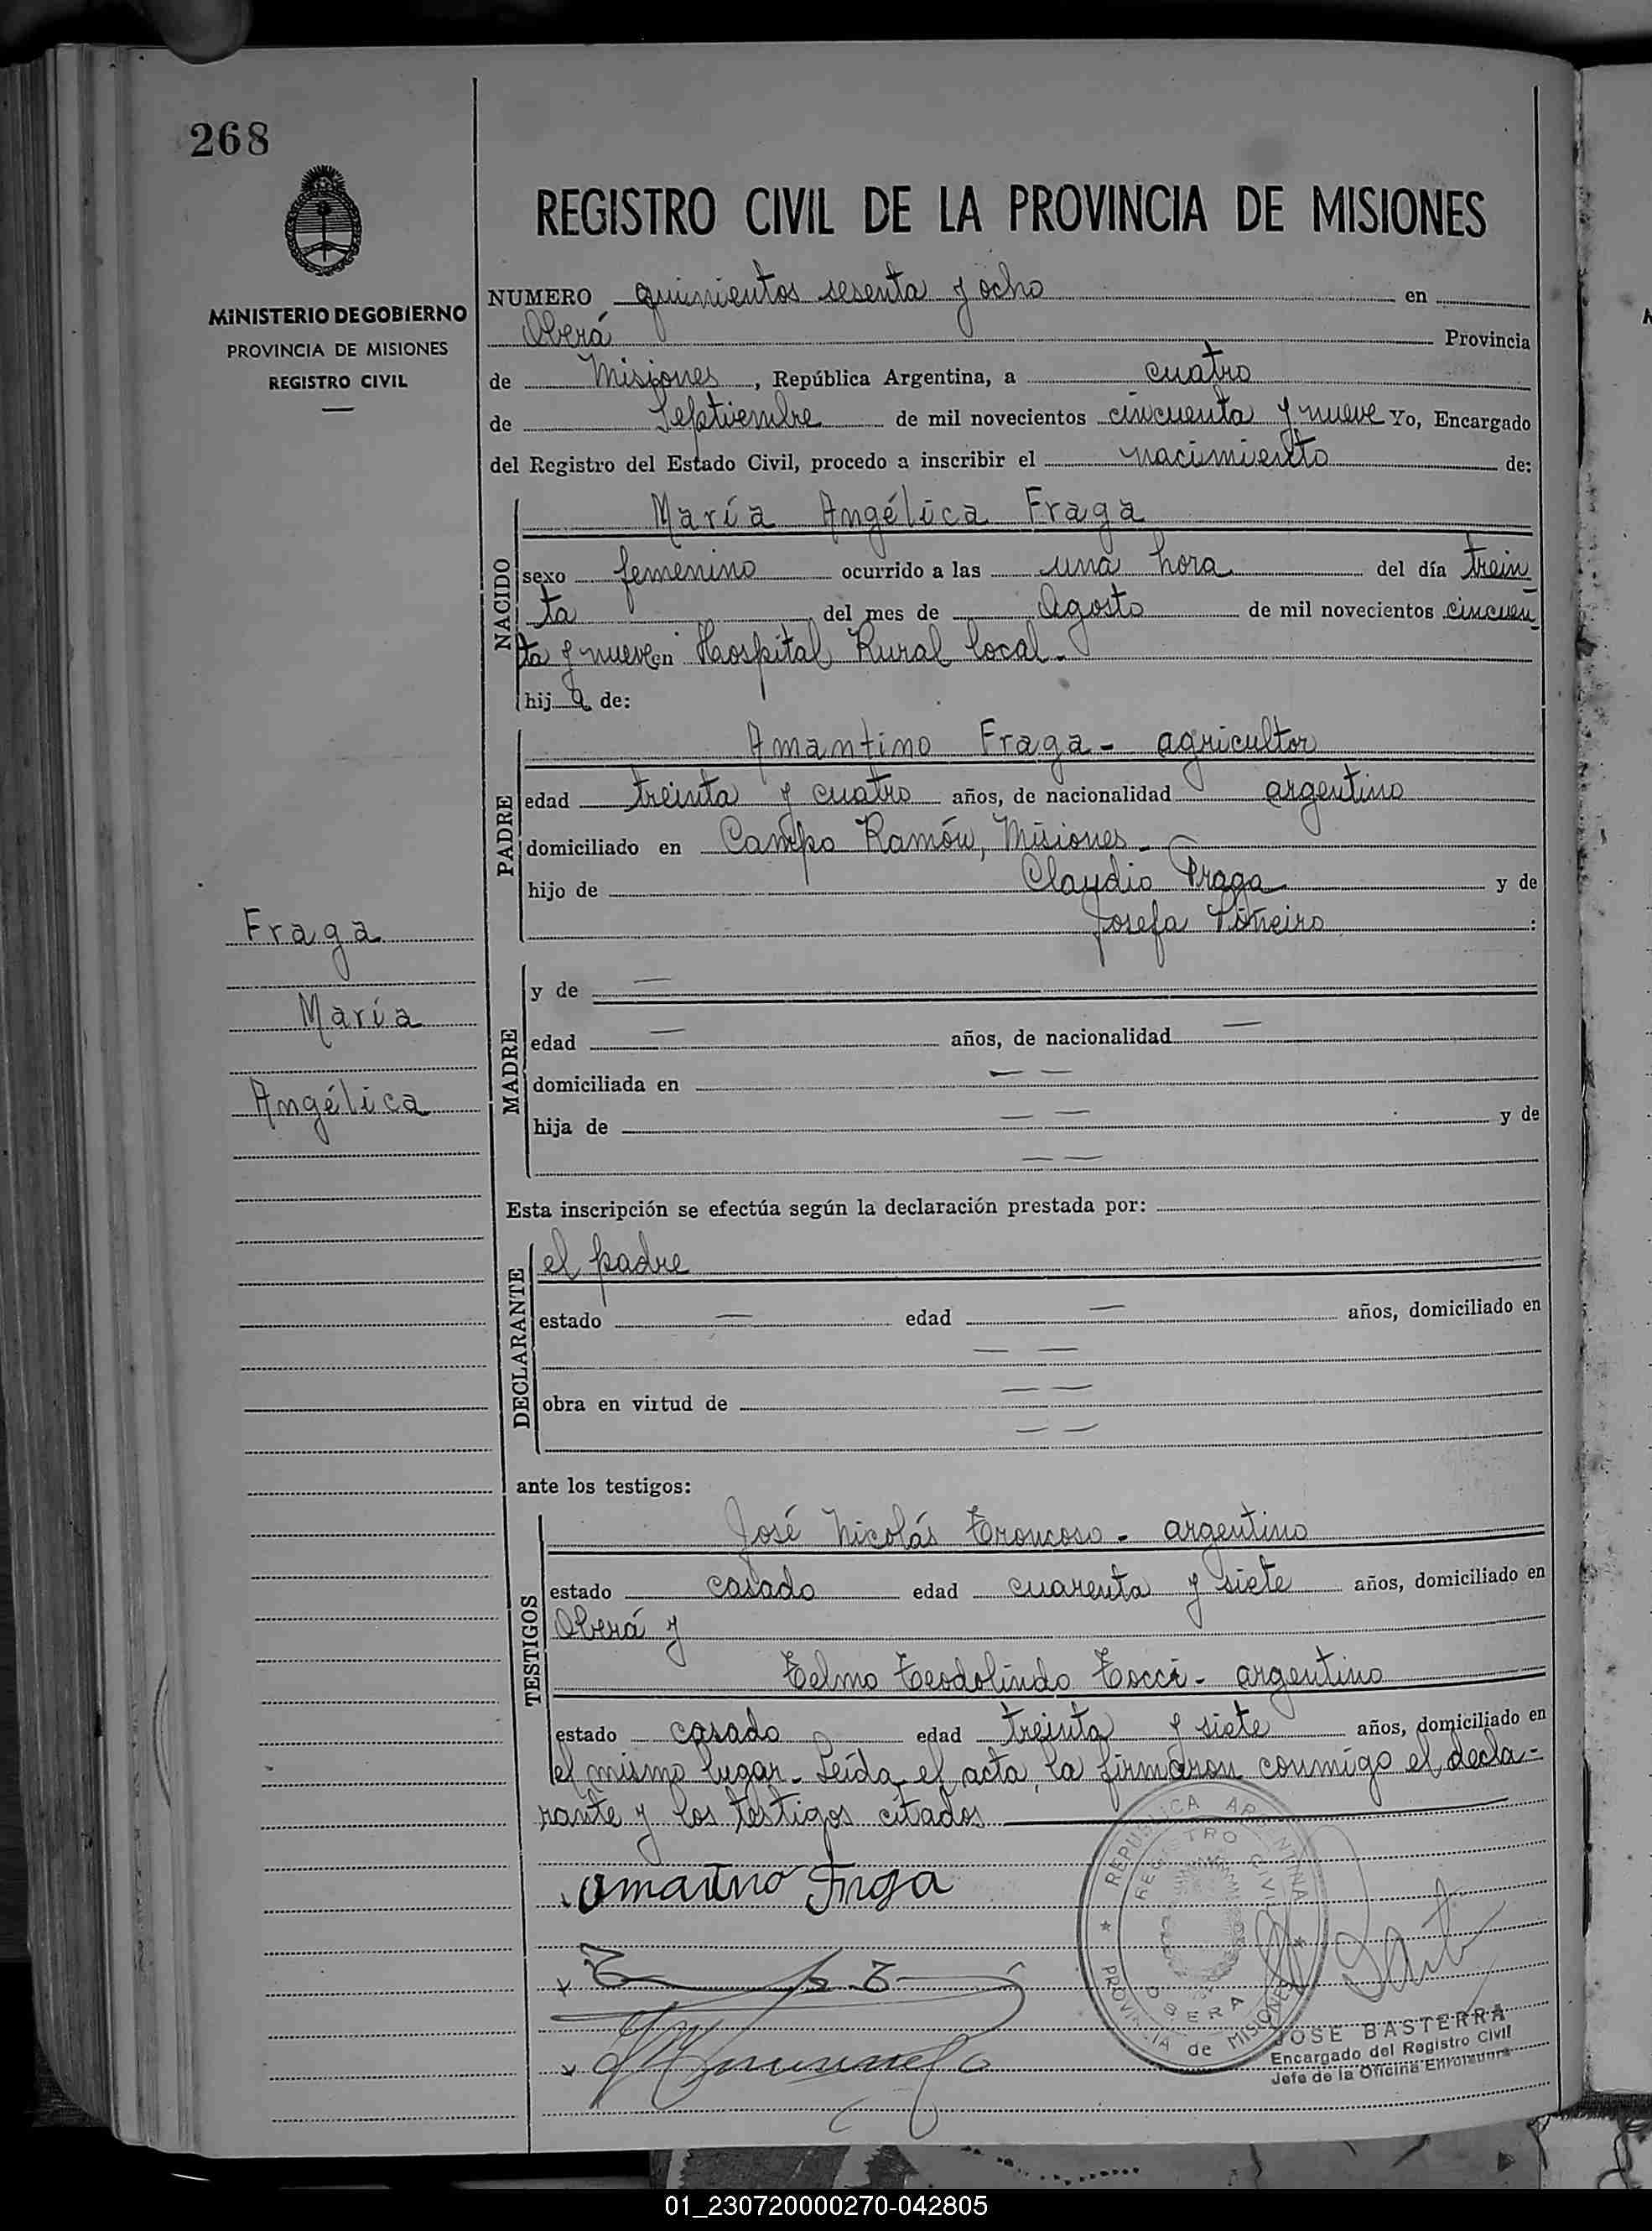 268
MINISTERIO DE GOBIERNO
PROVINCIA DE MISIONES
REGISTRO CIVIL
REGISTRO CIVIL DE LA PROVINCIA DE MISIONES
NUMERO quinientos sesenta y ocho en
Oberá Provincia
de Misiones, República Argentina, a cuatro
de Septiembre de mil novecientos cincuenta y nueve Yo, Encargado
del Registro del Estado Civil, procedo a inscribir el nacimiento de:
NACIDO
María Angélica Fraga
sexo femenino ocurrido a las una hora del día trein
ta del mes de Agosto de mil novecientos cincuen
ta y nueve en Hospital Rural local.
hija de:
PADRE
Amantino Fraga - agricultor
edad treinta y cuatro años, de nacionalidad argentino
domiciliado en Campo Ramón, Misiones.
hijo de Claudio Fraga y de
Josefa Piñeiro :
Fraga
María
Angélica
MADRE
y de —
edad — años, de nacionalidad —
domiciliada en — —
hija de — — y de
— —
Esta inscripción se efectúa según la declaración prestada por:
DECLARANTE
el padre
estado — edad — años, domiciliado en
— —
obra en virtud de — —
— —
ante los testigos:
TESTIGOS
José Nicolás Troncoso - argentino
estado casado edad cuarenta y siete años, domiciliado en
Oberá y
Telmo Teodolindo Tocci - argentino
estado casado edad treinta y siete años, domiciliado en
el mismo lugar. Leída el acta, la firmaron conmigo el decla-
rante y los testigos citados
REPUBLICA ARGENTINA
REGISTRO CIVIL
OBERA
PROVINCIA de MISIONES
JOSE BASTERRA
Encargado del Registro Civil
Jefe de la Oficina Enroladora
01_230720000270-042805